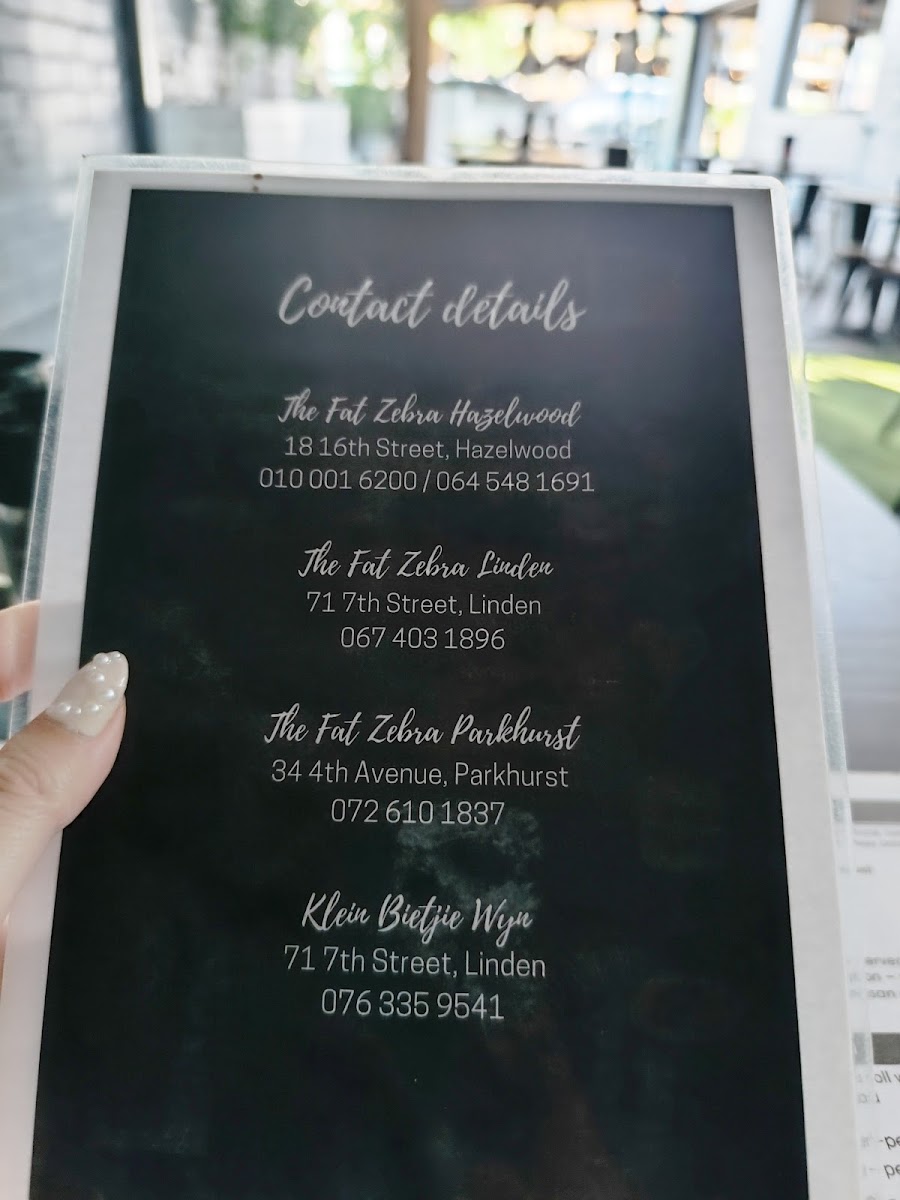 Contact details
The Fat Zebra Hazelwood
18 16th Street, Hazelwood
010 001 6200 / 064 548 1691
The Fat Zebra Linden
71 7th Street, Linden
067 403 1896
The Fat Zebra Parkhurst
34 4th Avenue, Parkhurst
072 610 1837
Klein Bietjie Wyn
71 7th Street, Linden
076 335 9541